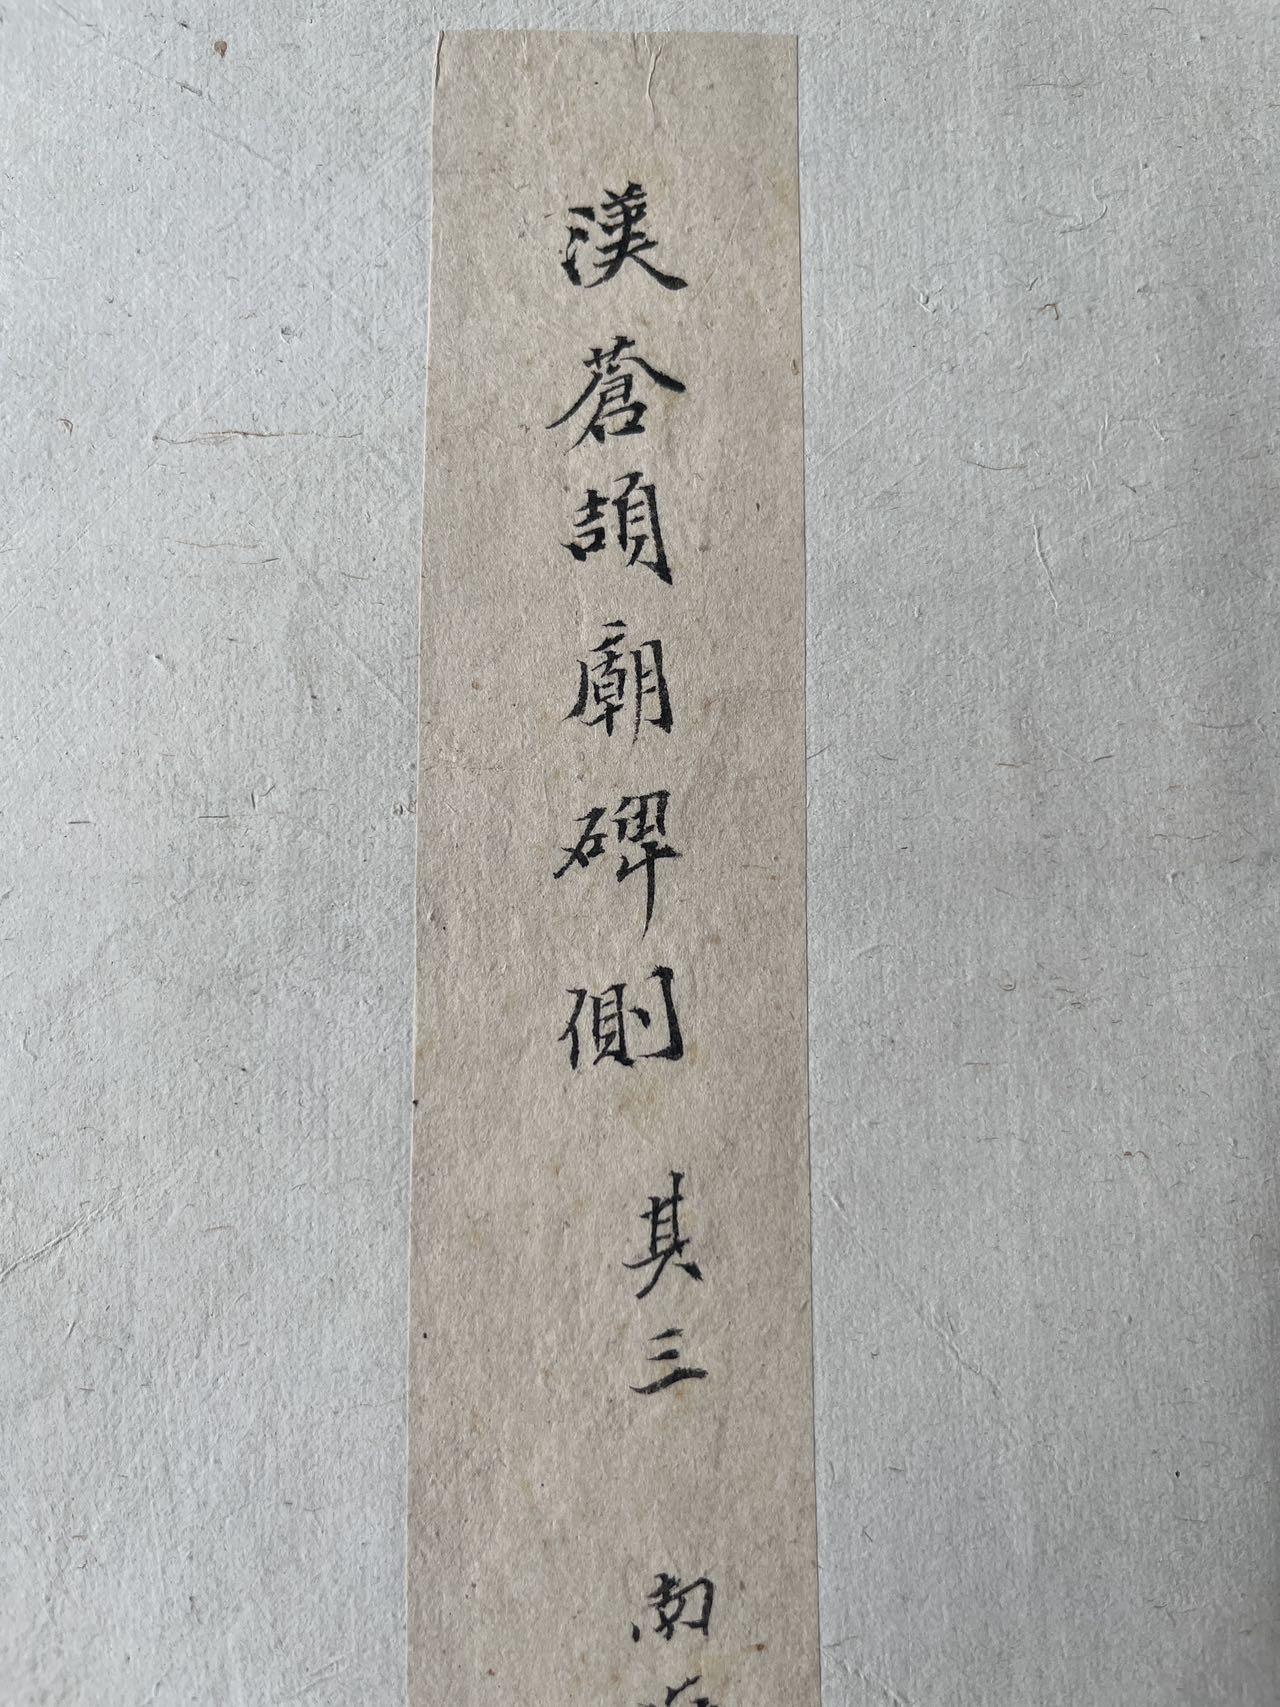 漢蒼頡廟碑側 其三 南